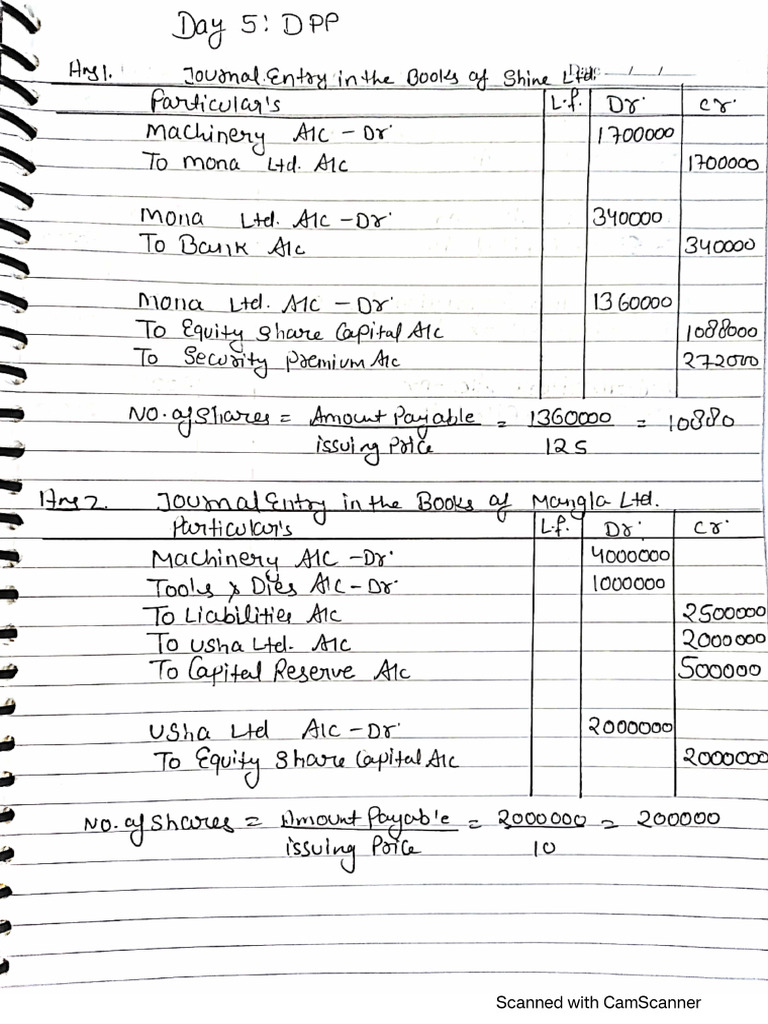 Day 5: DPP
Ans 1. Journal Entry in the Books of Shine Ltd.
Particular's L.f. Dr. Cr.
Machinery A/c - Dr. 1700000
To Mona Ltd. A/c 1700000
Mona Ltd. A/c - Dr. 340000
To Bank A/c 340000
Mona Ltd. A/c - Dr. 1360000
To Equity Share Capital A/c 1088000
To Security Premium A/c 272000
No. of Shares = Amount Payable / issuing Price = 1360000 / 125 = 10880
Ans 2. Journal Entry in the Books of Mangla Ltd.
Particular's L.f. Dr. Cr.
Machinery A/c - Dr. 4000000
Tools & Dies A/c - Dr. 1000000
To Liabilities A/c 2500000
To Usha Ltd. A/c 2000000
To Capital Reserve A/c 500000
Usha Ltd A/c - Dr. 2000000
To Equity Share Capital A/c 2000000
No. of Shares = Amount Payable / issuing Price = 2000000 / 10 = 200000
Scanned with CamScanner